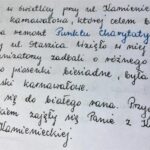 w świetlicy przy ul. Kamienie
karnawałowa, której celem b
na remont Punktu Charytaty
ul Starzica. Wzięło w niej
nizatorzy zadbali o różnego
piosenki biesiadne, była
ski karnawałowe.
się do białego rana. Przyg
iem zajęły się Panie z K
Kamienieckiej.